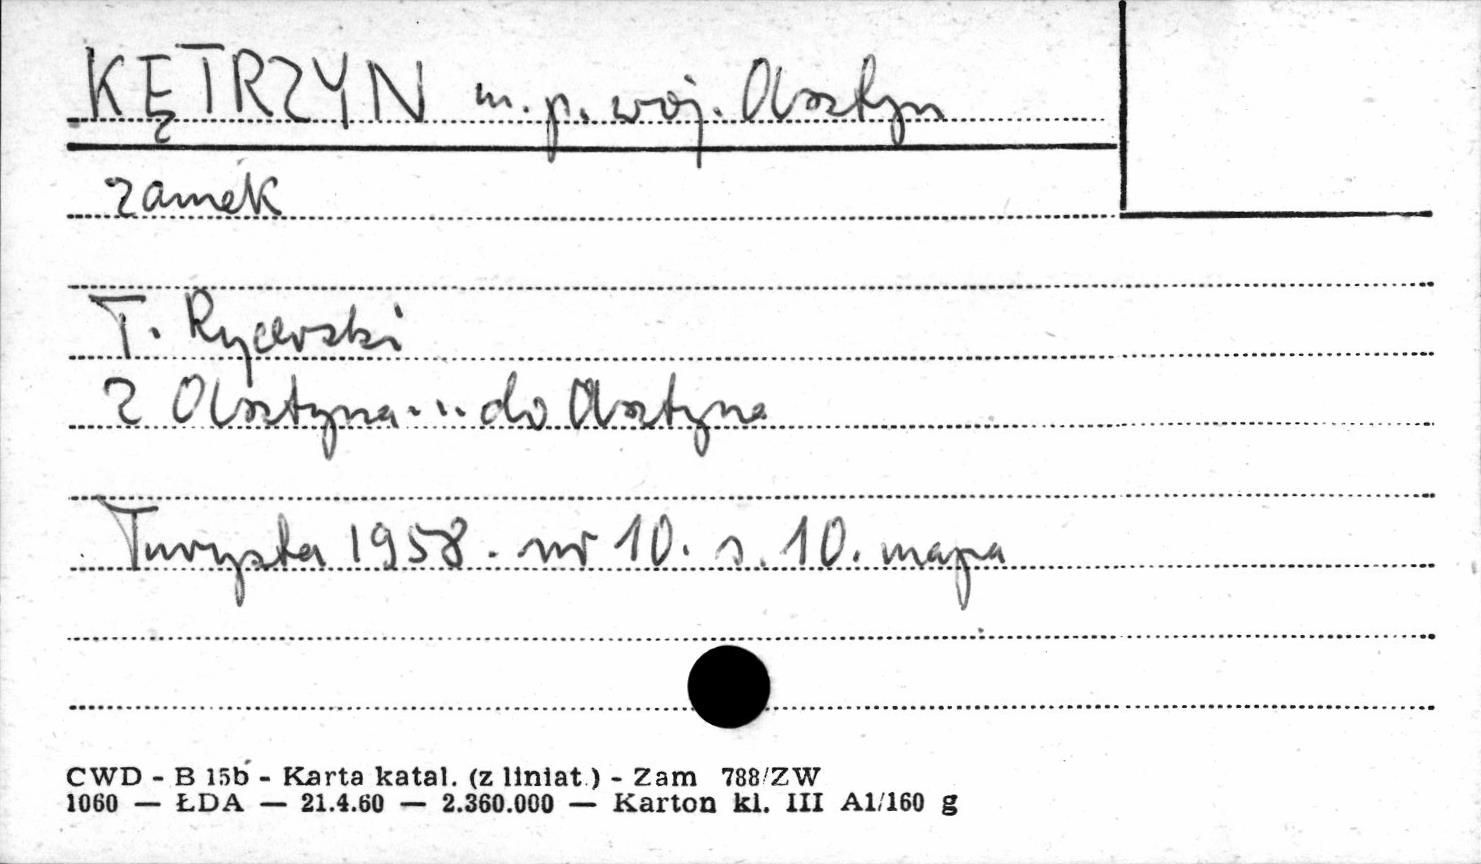 KĘTRZYN m. p. woj. Olsztyn
zamek
T. Rycerski
Z Olsztyna... do Olsztyna
Turysta 1958. nr 10. s. 10. mapa
CWD - B 15b - Karta katal. (z liniat.) - Zam 788/ZW
1060 — ŁDA — 21.4.60 — 2.360.000 — Karton kl. III A1/160 g